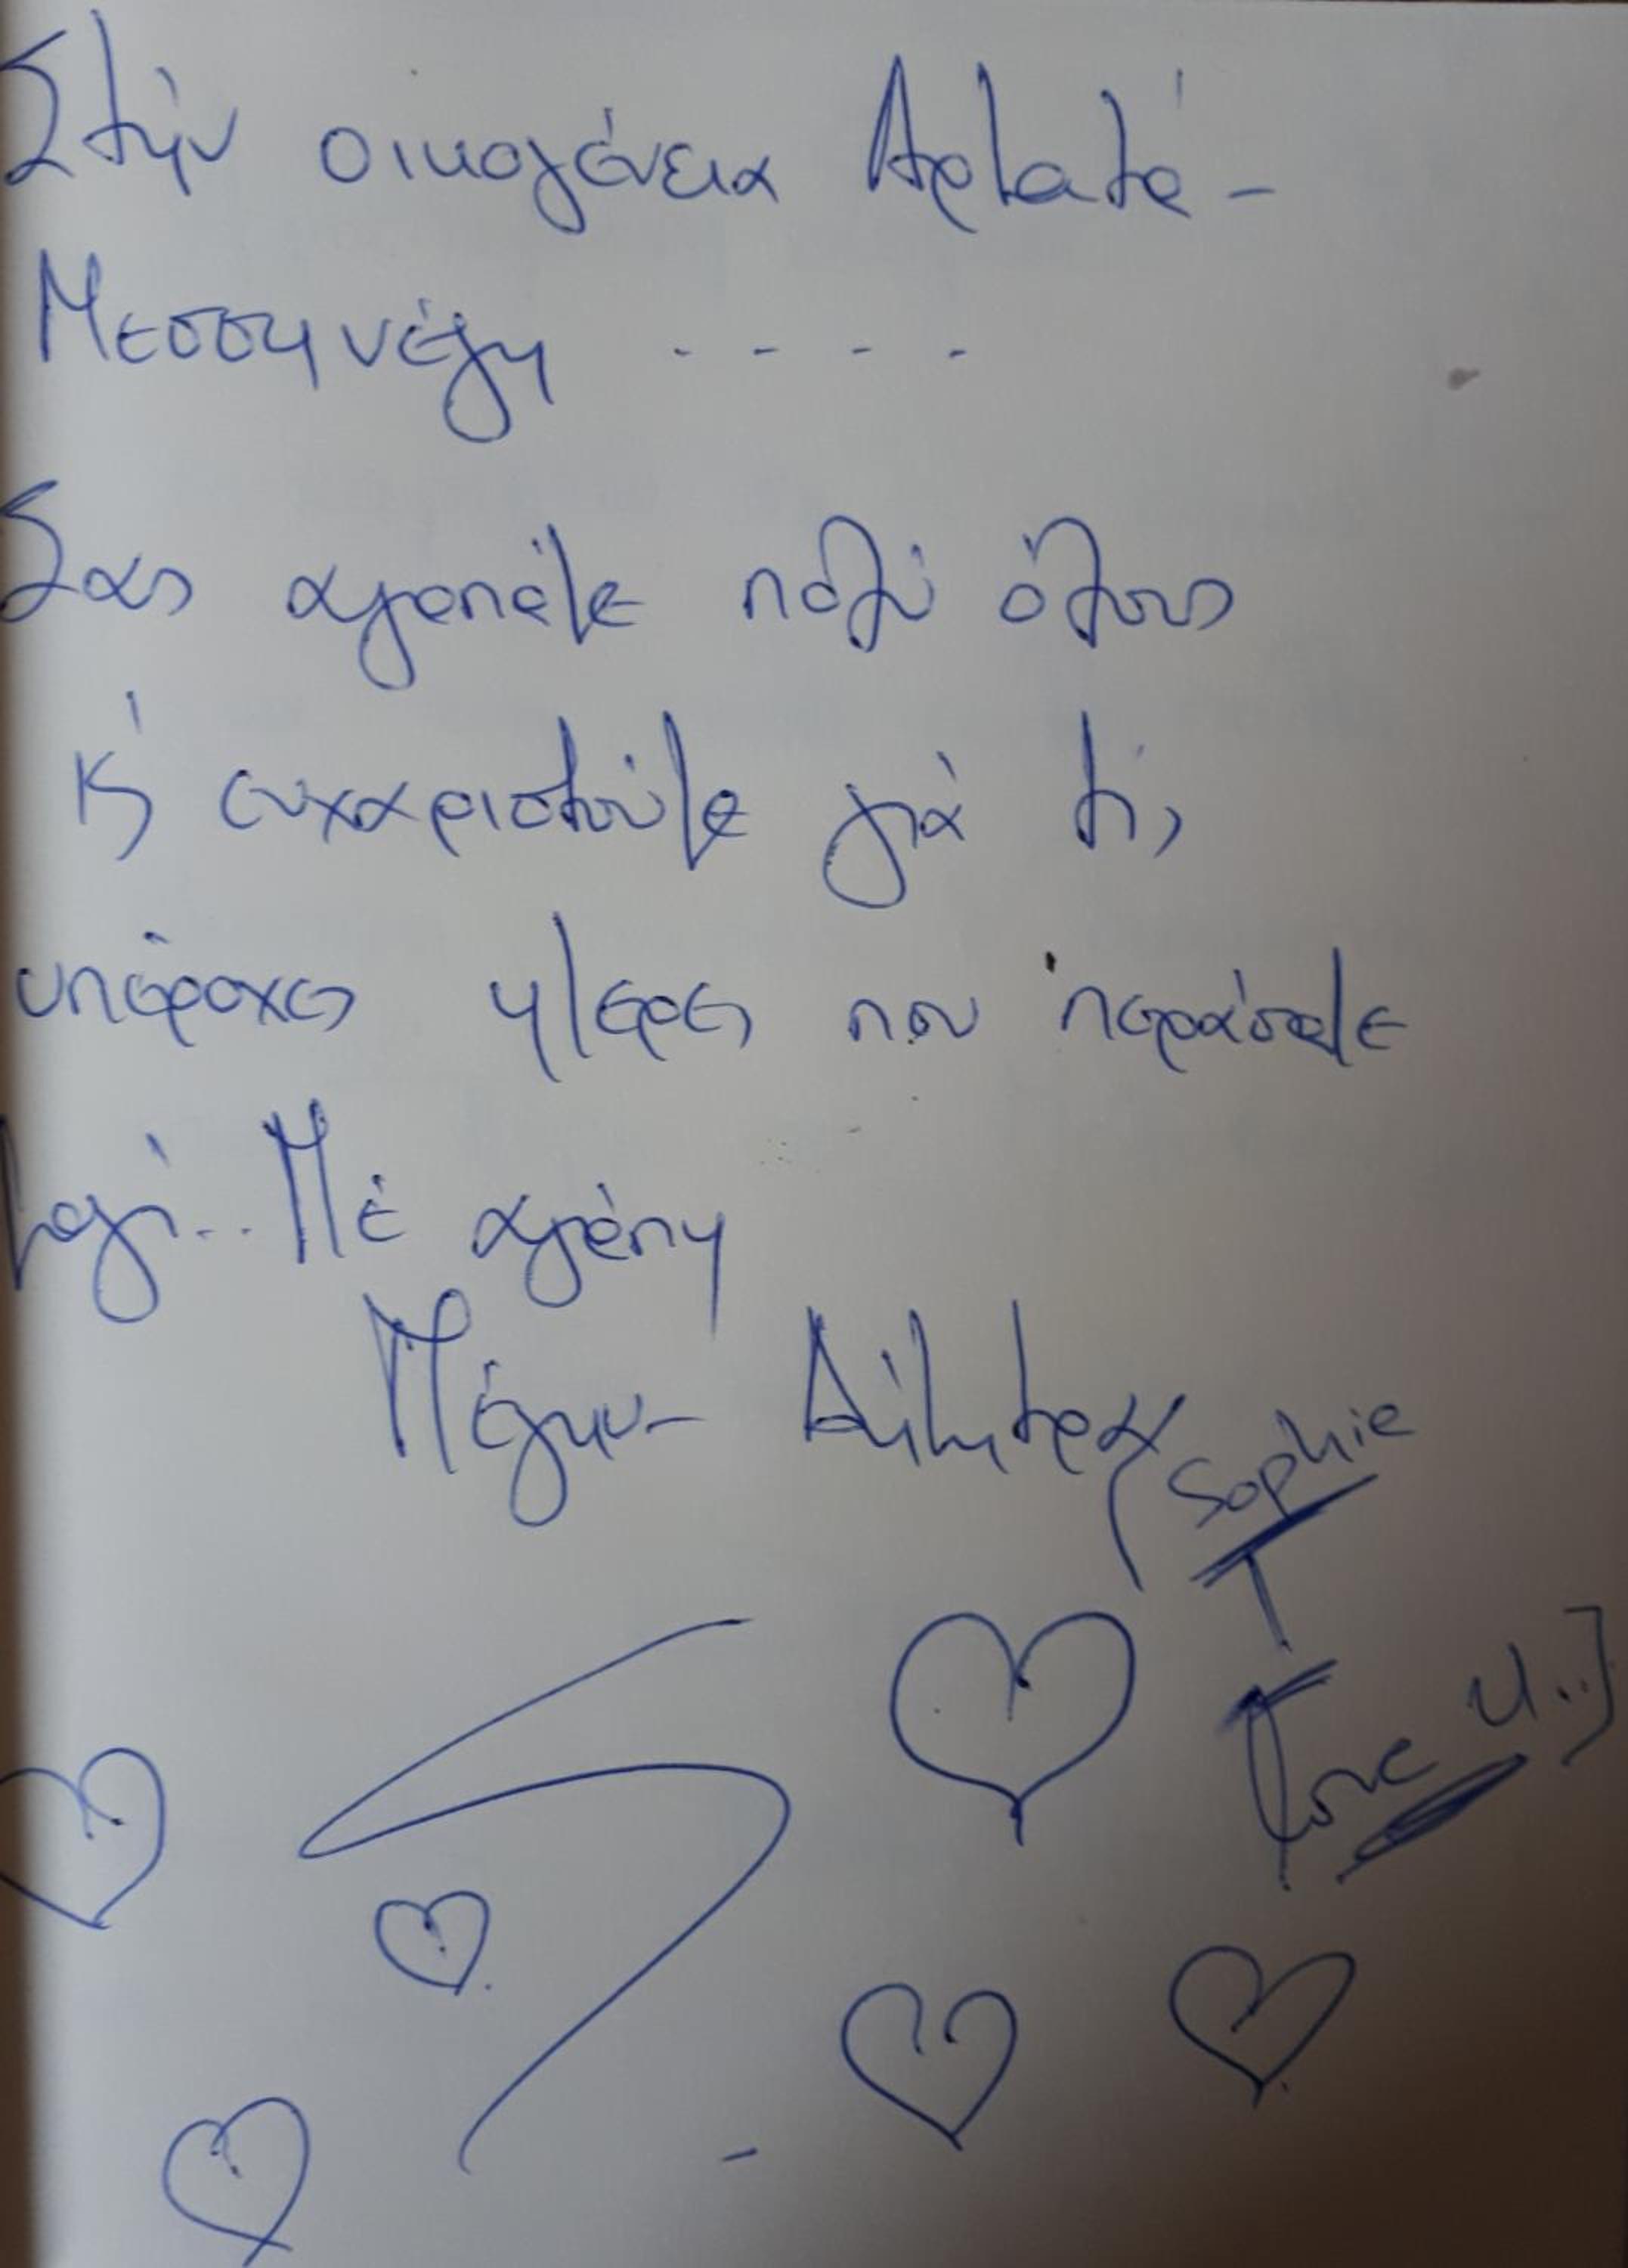 Στήν οικογένεια Αρματά -
Μεσσηνέζη - - - -
Σας αγαπάμε πολύ όλους
κ' ευχαριστούμε γιά τίς
υπέροχες ημέρες που περάσαμε
μαζί.. Μέ αγάπη
Μέγην - Δήμητρα
Sophie
love u..]